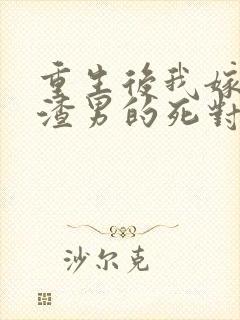 重生後我嫁
渣男的死對
沙尔克